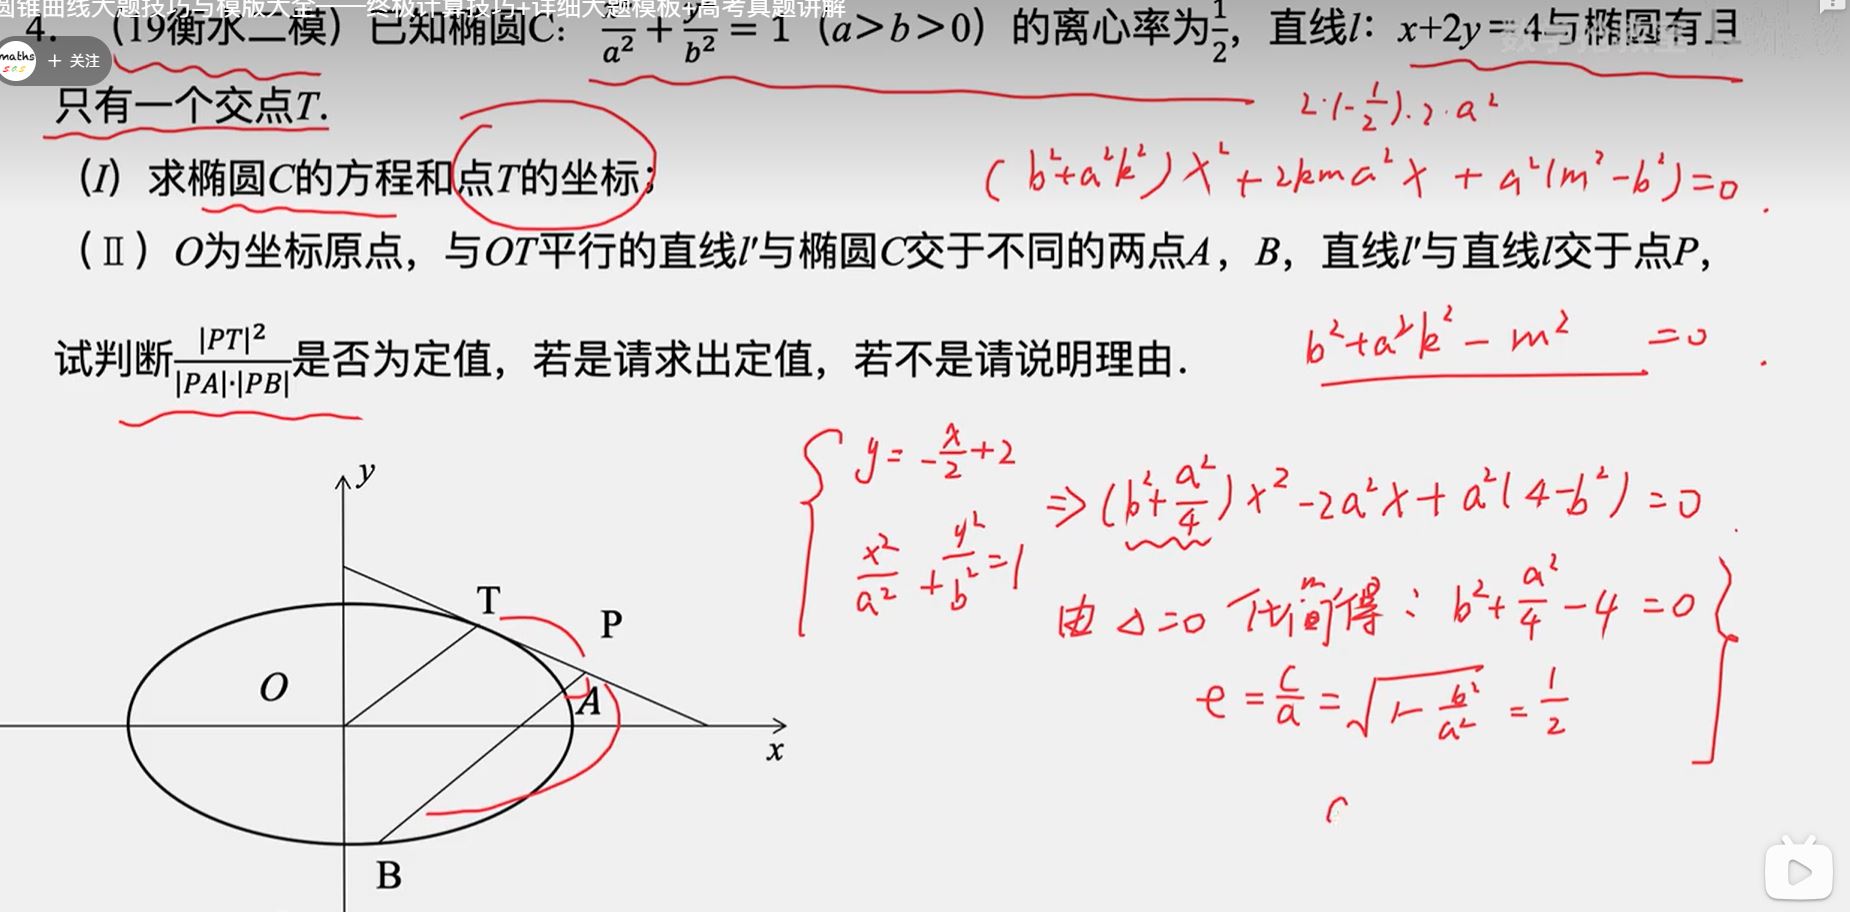 圆锥曲线大题技巧与模版大全——终极计算技巧+详细大题模板+高考真题讲解
maths
s.o.s
+ 关注
4. （19衡水二模）已知椭圆C：x²/a²+y²/b²=1（a>b>0）的离心率为1/2，直线l：x+2y=4与椭圆有且
只有一个交点T.
2·(-1/2)·2·a²
（I）求椭圆C的方程和点T的坐标；
(b²+a²k²)x²+2kma²x+a²(m²-b²)=0.
（Ⅱ）O为坐标原点，与OT平行的直线l′与椭圆C交于不同的两点A，B，直线l′与直线l交于点P，
试判断|PT|²/|PA|·|PB|是否为定值，若是请求出定值，若不是请说明理由.
b²+a²k²-m²=0.
y=-x/2+2
x²/a²+y²/b²=1
⇒(b²+a²/4)x²-2a²x+a²(4-b²)=0.
由Δ=0化简得：b²+a²/4-4=0
e=c/a=√(1-b²/a²)=1/2
y
T
P
O
A
x
B